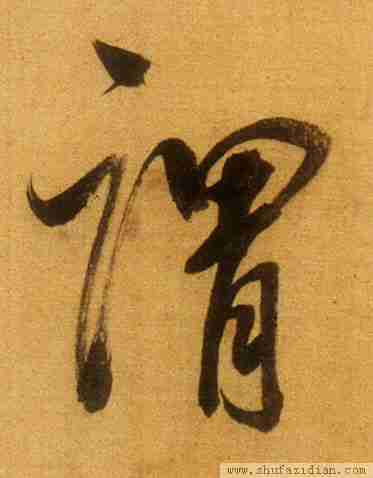 謂
www.shufazidian.com